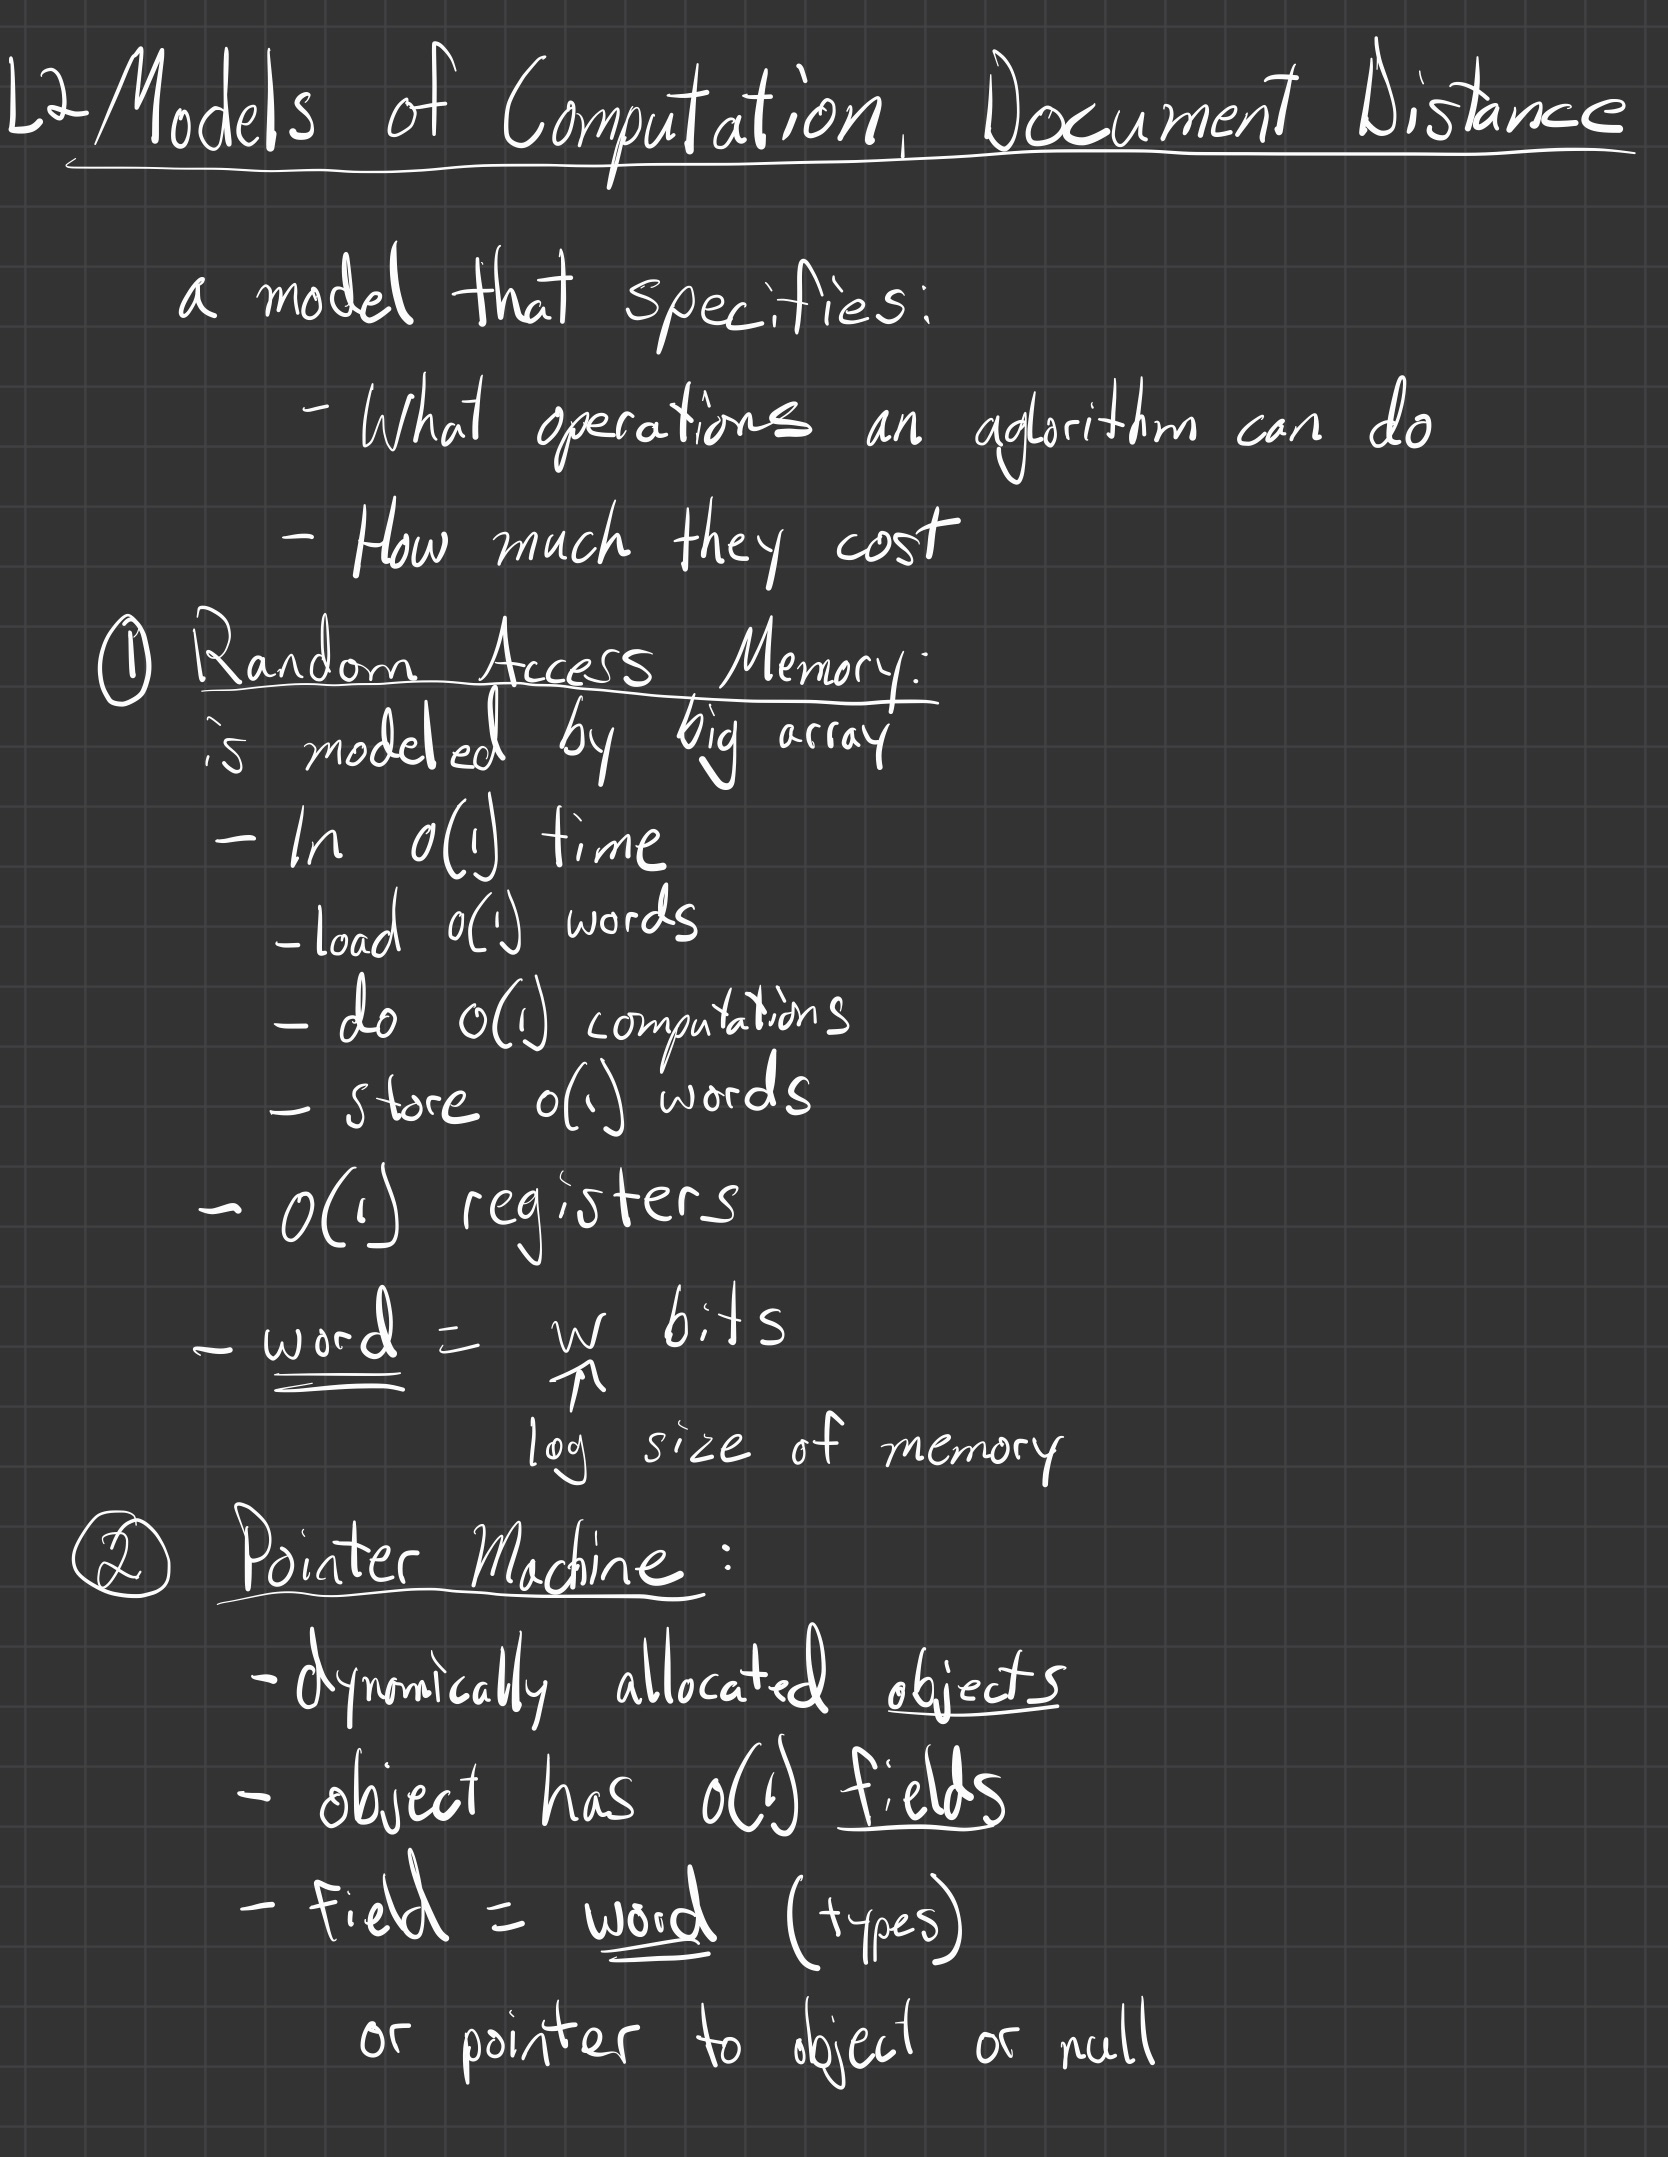 L2 Models of Computation, Document Distance
a model that specifies:
- What operations an aglorithm can do
- How much they cost
① Random Access Memory:
is modeled by big array
- In O(1) time
- load O(1) words
- do O(1) computations
- store O(1) words
- O(1) registers
- word = w bits
↑
log size of memory
② Pointer Machine:
- dynamically allocated objects
- object has O(1) fields
- field = word (types)
or pointer to object or null